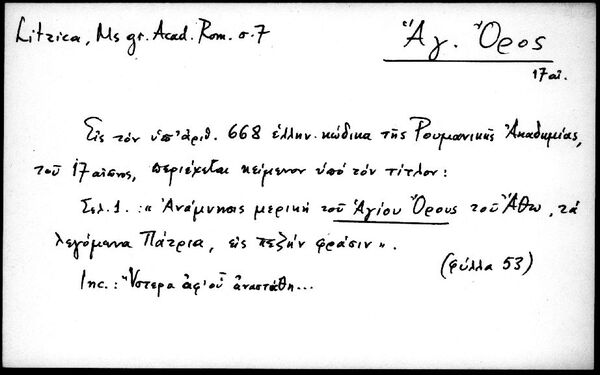 Litzica, Ms gr. Acad. Rom. σ. 7
Ἅγ. Ὄρος
17 αἰ.
Εἰς τὸν ὑπ' ἀριθ. 668 ἑλλην. κώδικα τῆς Ρουμανικῆς Ἀκαδημίας,
τοῦ 17 αἰῶνος, περιέχεται κείμενον ὑπὸ τὸν τίτλον:
Σελ. 1. : « Ἀνάμνησις μερικὴ τοῦ Ἁγίου Ὄρους τοῦ Ἄθω, τὰ
λεγόμενα Πάτρια, εἰς πεζὴν φράσιν ».
(φύλλα 53)
Inc. : Ὕστερα ἀφ' οὗ ἀνεστάθη...